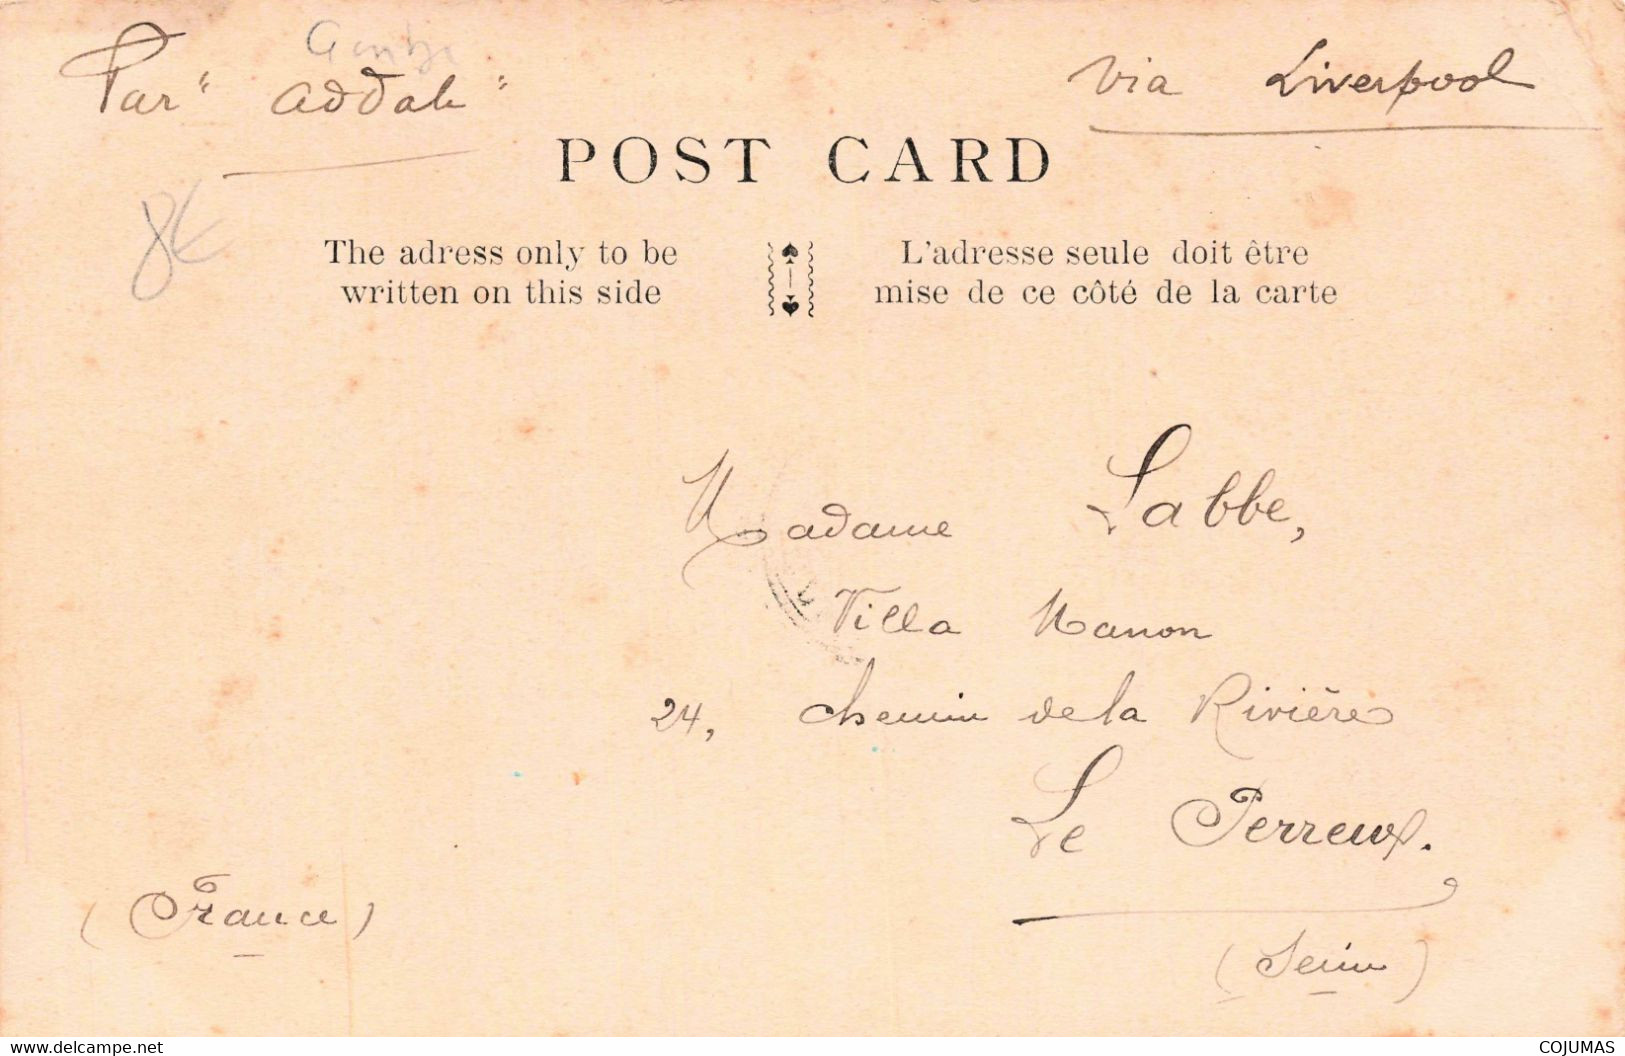 Par "addah"
Via Liverpool
8€
POST CARD
The adress only to be
written on this side
L'adresse seule doit être
mise de ce côté de la carte
Madame Labbe,
Villa Manon
24, chemin de la Rivière
Le Perreux.
(France)
(Seine)
www.delcampe.net
COJUMAS